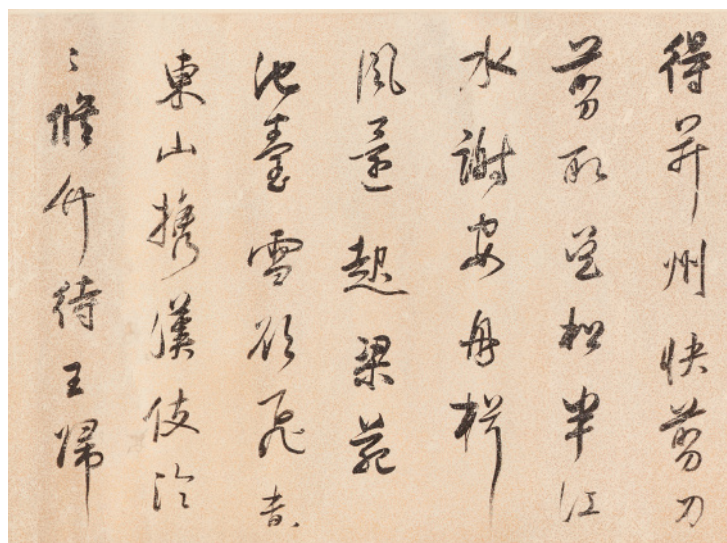 得并州快剪刀
剪取吳松半江
水謝安舟楫
風還起梁苑
池臺雪欲飛杳
東山携漢伎泠
々修竹待王歸